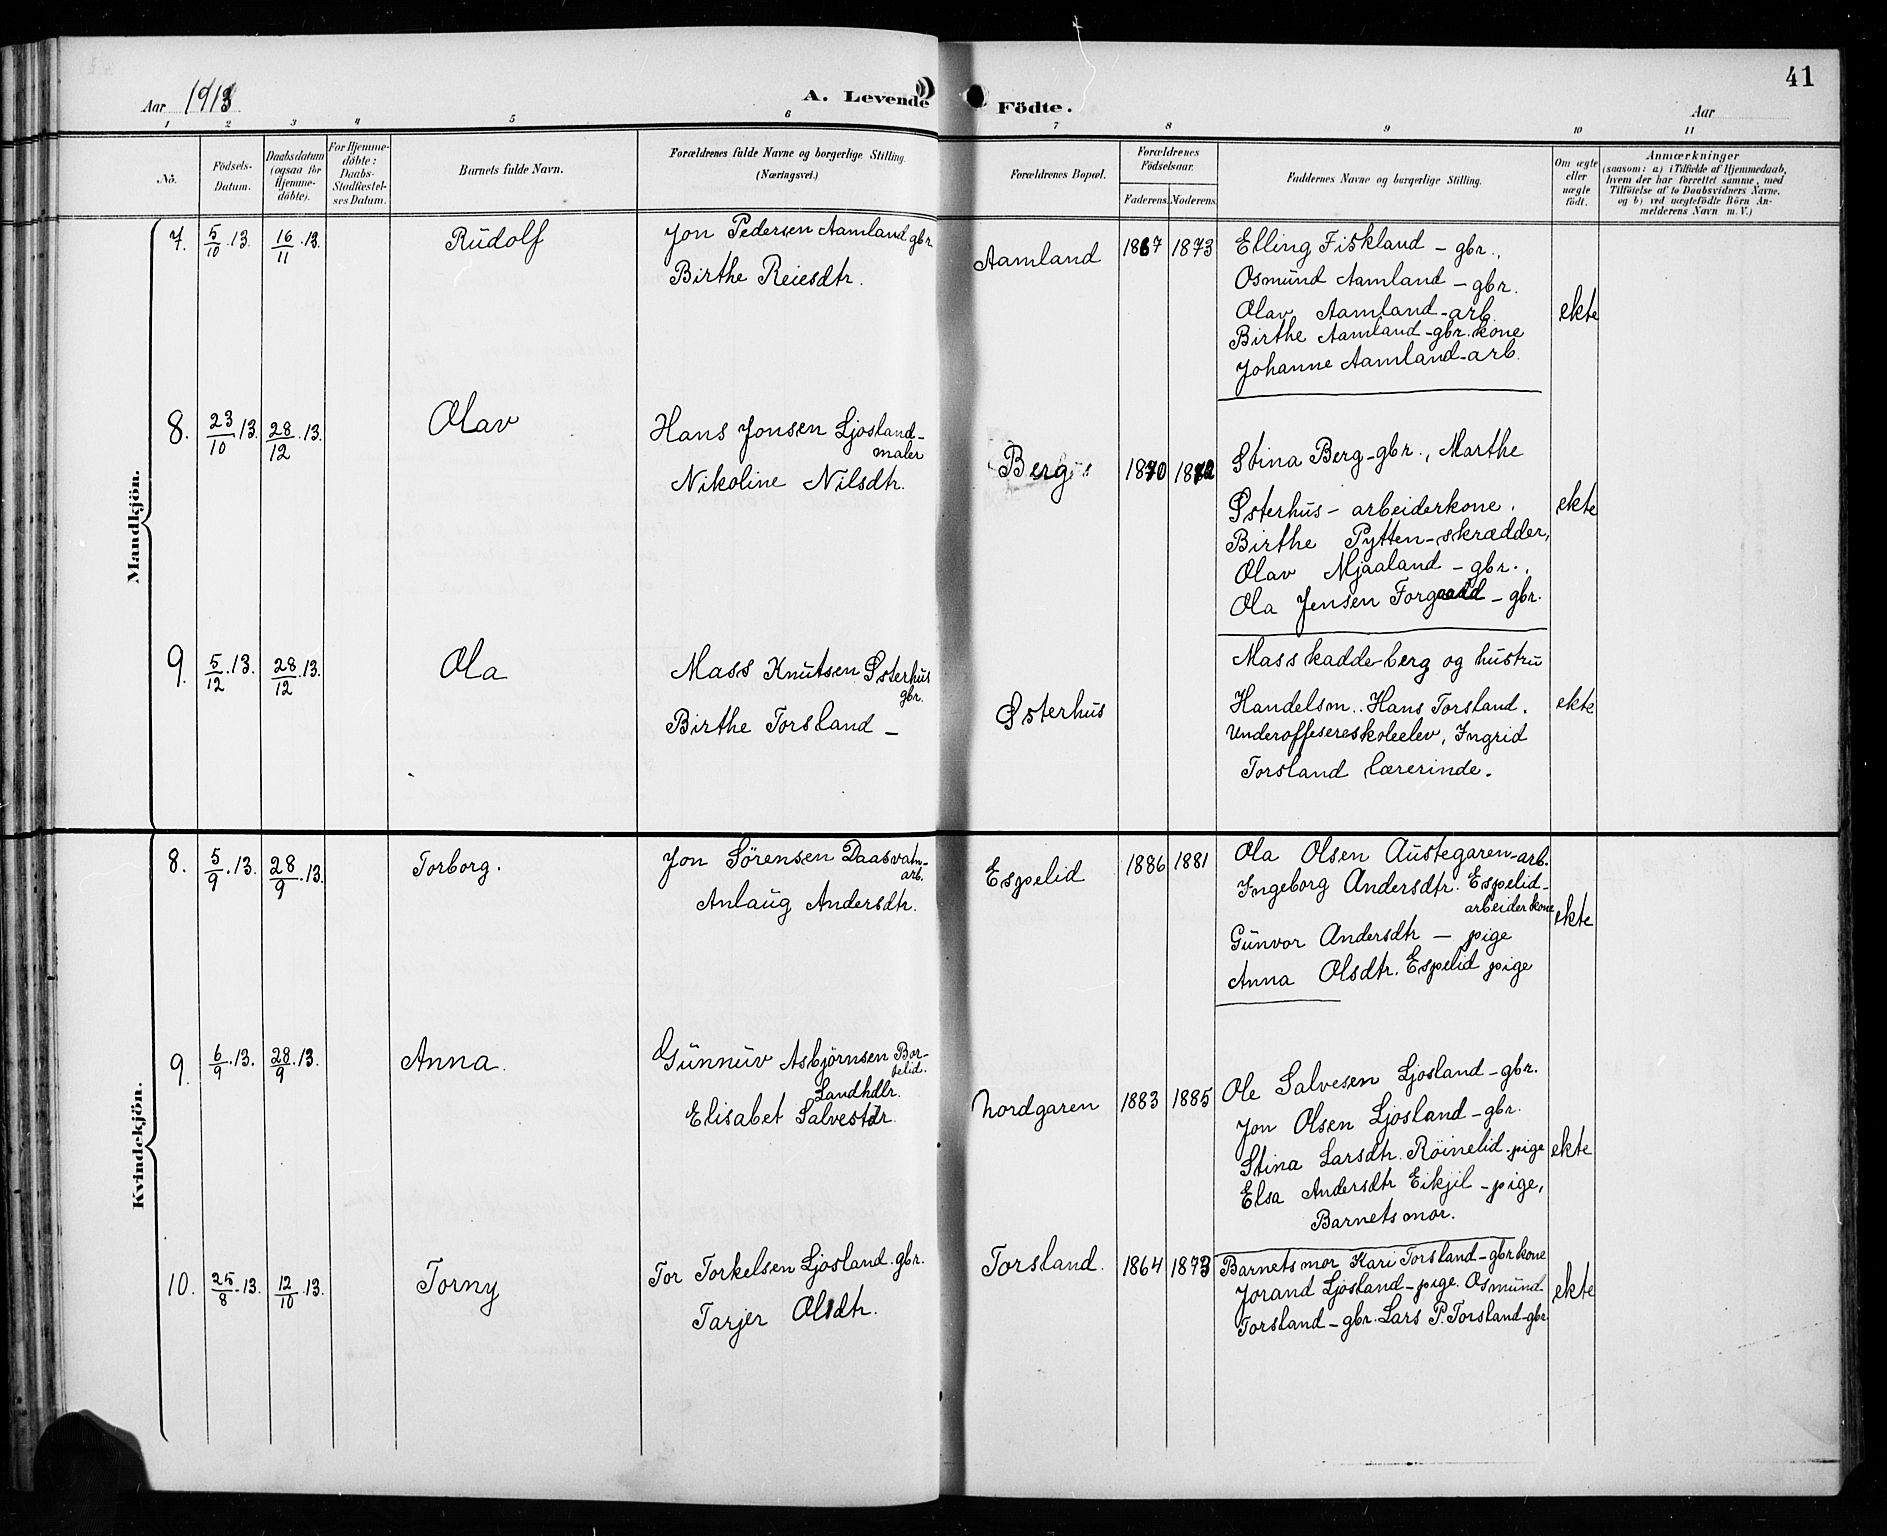 41
Aar 1913
A. Levende Födte.
Aar
1 2 3 4 5 6 7 8 9 10 11
No.
Födsels-
Datum.
Daabsdatum
(ogsaa for
Hjemme-
döbte).
For Hjemme-
döbte:
Daabs-
Stadfæstel-
ses Datum.
Barnets fulde Navn.
Forældrenes fulde Navne og borgerlige Stilling.
(Næringsvei.)
Forældrenes Bopæl.
Forældrenes
Födselsaar.
Faderens. Moderens.
Faddernes Navne og borgerlige Stilling.
Om ægte
eller
uægte
födt.
Anmærkninger
(saasom: a) i Tilfælde af Hjemmedaab,
hvem der har forrettet samme, med
Tilföielse af to Daabsvidners Navne,
og b) ved uægtefödte Börn An-
melderens Navn m. V.)
Mandkjön.
7. 5/10.13. 16/11.13. Rudolf
Jon Pedersen Aamland gbr.
Birthe Reiesdtr.
Aamland 1867 1873
Elling Fiskland - gbr.,
Osmund Aamland - gbr.
Olav Aamland - arb.
Birthe Aamland - gbr. kone
Johanne Aamland - arb.
ekte
8. 23/10.13. 28/12.13. Olav
Hans Jonsen Ljosland -
maler
Nikoline Nilsdtr.
Berg 1870 1872
Stina Berg - gbr., Marthe
Østerhus - arbeiderkone.
Birthe Pytten - skrædder,
Olav Mjaaland - gbr.,
Ola Jensen Forgaard - gbr.
ekte
9. 5/12.13. 28/12.13. Ola
Mass Knutsen Østerhus
gbr.
Birthe Torsland -
Østerhus
Mass kaddeberg og hustru
Handelsm.. Hans Torsland.
Underoffesereskoleelev, Ingrid
Torsland lærerinde.
ekte
Kvindekjön.
8. 5/9.13. 28/9.13. Torborg.
Jon Sørensen Daasvatn-
arb.
Anlaug Andersdtr.
Espelid 1886 1881
Ola Olsen Austegaren - arb.
Ingeborg Andersdtr. Espelid -
arbeiderkone
Gunvor Andersdtr - pige
Anna Olsdtr. Espelid pige
ekte
9. 6/9.13. 28/9.13. Anna.
Gunnuv Asbjørnsen Bor-
telid.
Landhdlr.
Elisabet Salvestdr.
Nordgaren 1883 1885
Ole Salvesen Ljosland - gbr.
Jon Olsen Ljosland - gbr.
Stina Larsdtr. Röinelid - pige
Elsa Andersdtr Eikjil - pige,
Barnets mor.
ekte
10. 25/8.13. 12/10.13. Torny
Tor Torkelsen Ljosland - gbr.
Tarjer Olsdtr.
Torsland. 1864 1873
Barnets mor Kari Torsland - gbr kone
Jorand Ljosland - pige. Osmund
Torsland - gbr. Lars P. Torsland - gbr.
ekte